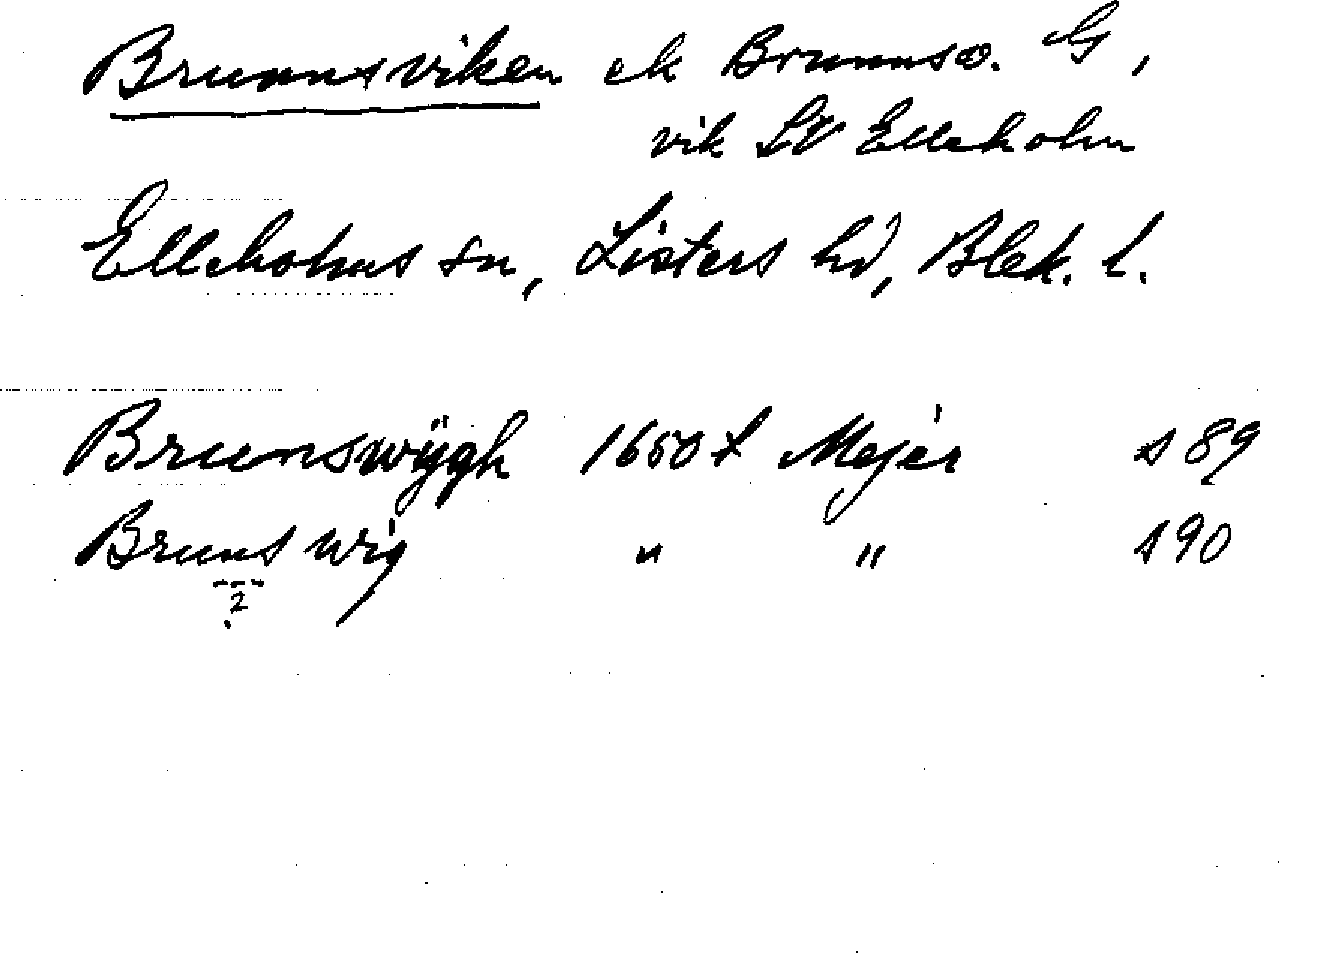 Brunnsviken ek Brunnsv. G,
vik SV Elleholm
Elleholms sn, Listers hd, Blek. l.
Brunswÿgh 1650t Mejer s 89
Bruns wig " " s 90
?